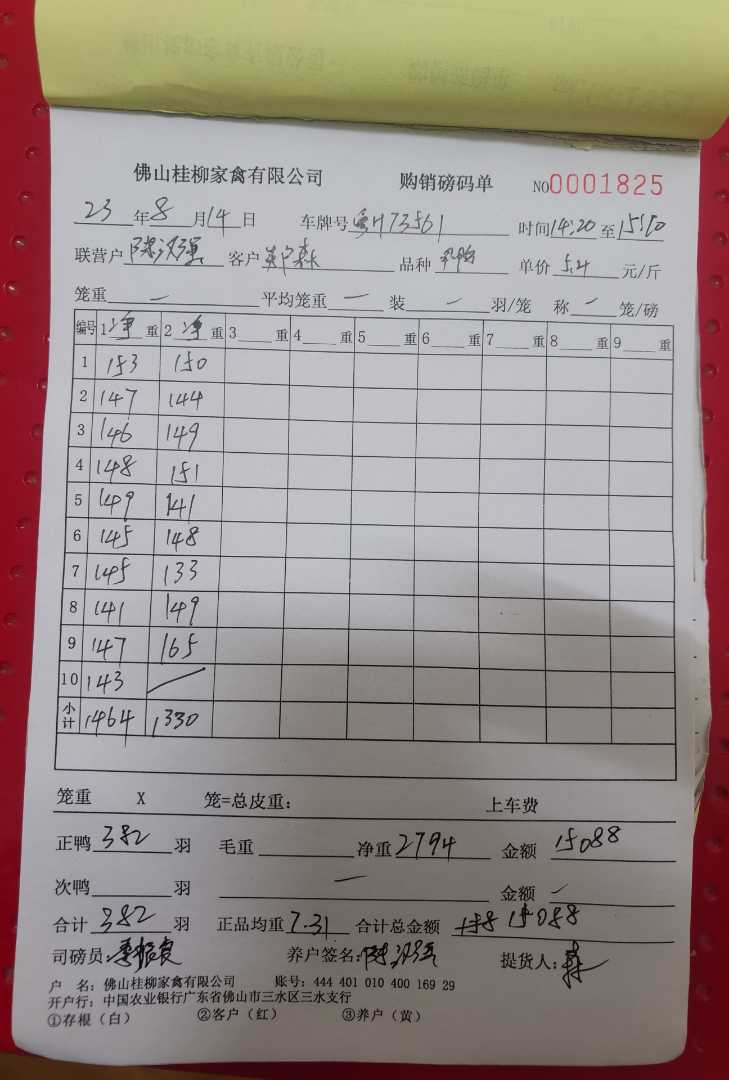 佛山桂柳家禽有限公司 购销磅码单 NO0001825
23年8月14日 车牌号粤H73561 时间14:20至15:10
联营户陈汉强 客户 森 品种 单价5.4元/斤
笼重 — 平均笼重 — 装 — 羽/笼 称 — 笼/磅
编号 1净重 2净重 3 重 4 重 5 重 6 重 7 重 8 重 9 重
1 153 150
2 147 144
3 146 149
4 148 151
5 149 141
6 145 148
7 145 133
8 141 149
9 147 165
10 143 /
小计 1464 1330
笼重 X 笼=总皮重: 上车费
正鸭382羽 毛重 净重2794 金额15088
次鸭 羽 — 金额 —
合计382羽 正品均重7.31 合计总金额 15088
司磅员: 养户签名:陈汉强 提货人:森
户 名: 佛山桂柳家禽有限公司 账号: 444 401 010 400 169 29
开户行: 中国农业银行广东省佛山市三水区三水支行
①存根（白） ②客户（红） ③养户（黄）